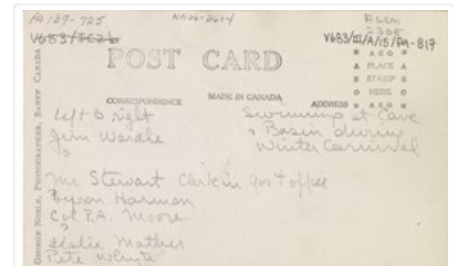 PA 139-725
NA66-2614
Accn.
2305
V653/TC26
V683/III/A/15/PA-817
POST CARD
AZO
PLACE
STAMP
HERE
AZO
CORRESPONDENCE
MADE IN CANADA
ADDRESS
GEORGE NOBLE, PHOTOGRAPHER, BANFF CANADA
Left to right
Jim Wardle
?
Mr Stewart Clerk in Gov't office
Byron Harmon
Col P.A. Moore
?
Mather
Pete Whyte
Swimming at Cave
& Basin during
Winter Carnival